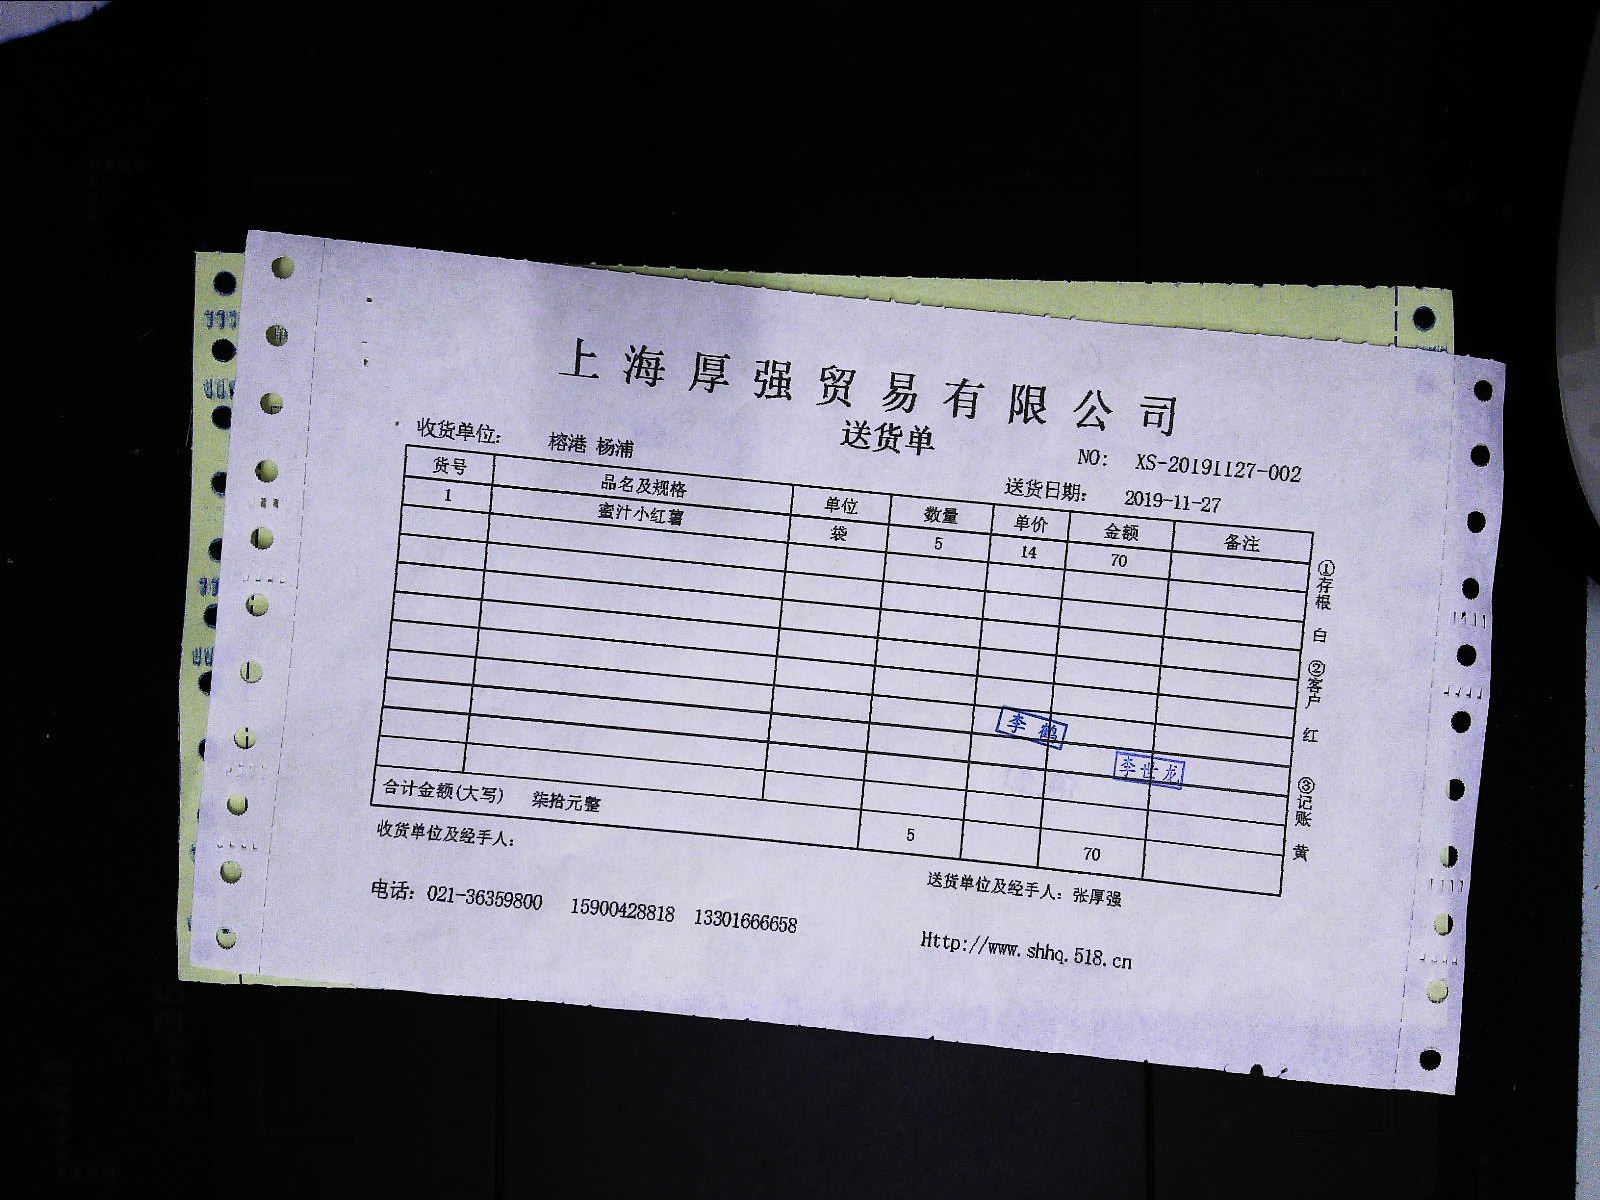 上海厚强贸易有限公司
送货单
收货单位： 榕港 杨浦
NO： XS-20191127-002
送货日期： 2019-11-27
货号 品名及规格 单位 数量 单价 金额 备注
1 蜜汁小红薯 袋 5 14 70
李 鹤
李世龙
合计金额(大写) 柒拾元整 5 70
收货单位及经手人：
送货单位及经手人：张厚强
电话：021-36359800 15900428818 13301666658
Http://www.shhq.518.cn
①存根 白 ②客户 红 ③记账 黄